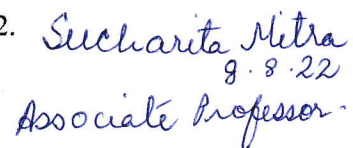 2. Sucharita Mitra
8.8.22
Associate Professor.